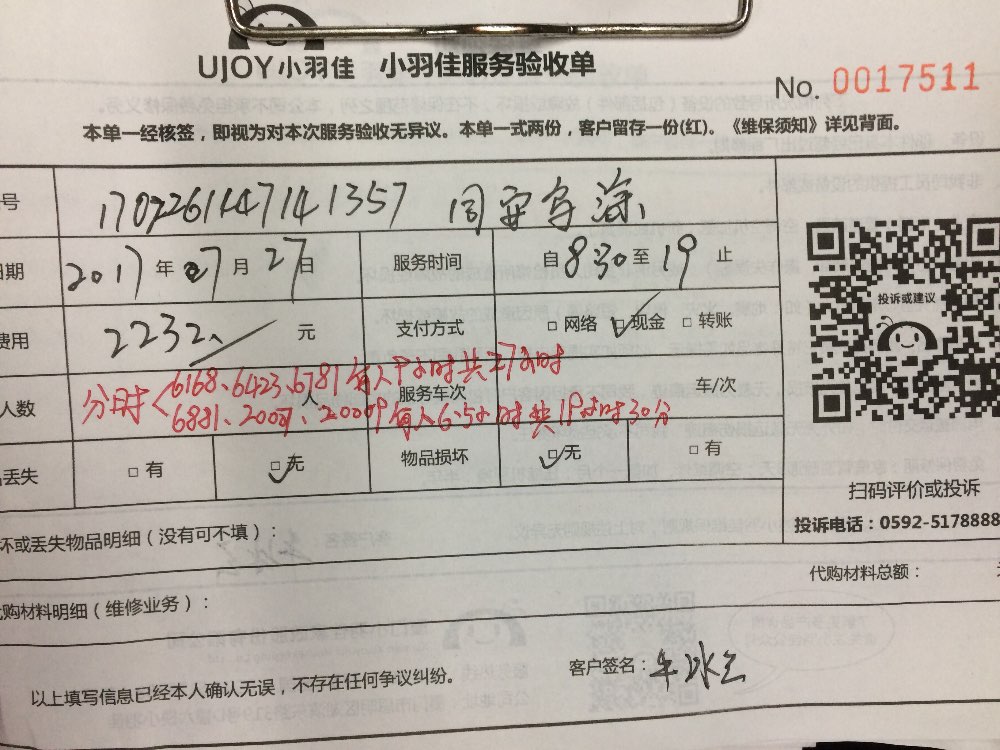 UJOY小羽佳 小羽佳服务验收单
No. 0017511
本单一经核签，即视为对本次服务验收无异议。本单一式两份，客户留存一份(红)。《维保须知》详见背面。
号 1707261447141357
日期 2017年07月27日 服务时间 自830至19止
费用 2232 元 支付方式 □网络 ☑现金 □转账
投诉或建议
人数 人 服务车次 车/次
分时 6168、6423、6781 每人9小时共27小时
每人6.5小时共19小时30分
丢失 □有 ☑无 物品损坏 ☑无 □有
扫码评价或投诉
投诉电话：0592-5178888
坏或丢失物品明细（没有可不填）：
代购材料总额：
购材料明细（维修业务）：
客户签名：
以上填写信息已经本人确认无误，不存在任何争议纠纷。